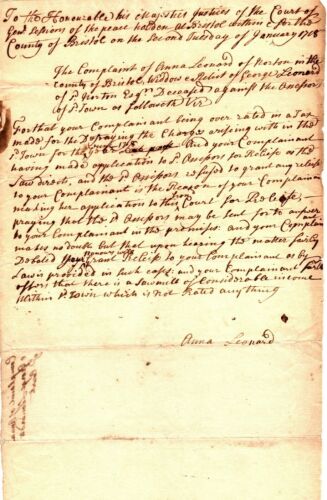 To the Honourable his Majestys Justices of the Court of
Genl Sessions of the peace holden at Bristol within & for the
County of Bristol on the Second Tuesday of January 1718
The Complaint of Anna Leonard of Norton in the
County of Bristol, Widdow & Relict of George Leonard
of sd Norton Esqr Deceased against the Assessors
of sd Town as followeth Viz
For that your Complainant being over rated in a Tax
made for the Defraying the Charge arising with in the
sd Town for the year And your Complainant
having made application to sd Assessors for Releife as the
Law directs, and the sd Assessors refused to grant any releif
to your Complainant is the Reason of your Complainants
making her application to this Court for Releife,
praying that the sd Assessors may be sent for to answer
to your Complainant in the premises: and your Complain
makes no doubt but that upon hearing the matter fairly
Debated your Honours will grant Releife to your Complainant as by
Law is provided in such cases: and your Complainant further
offers that there is a sawmill of Considerable income
within sd Town which is not Rated anything
Anna Leonard